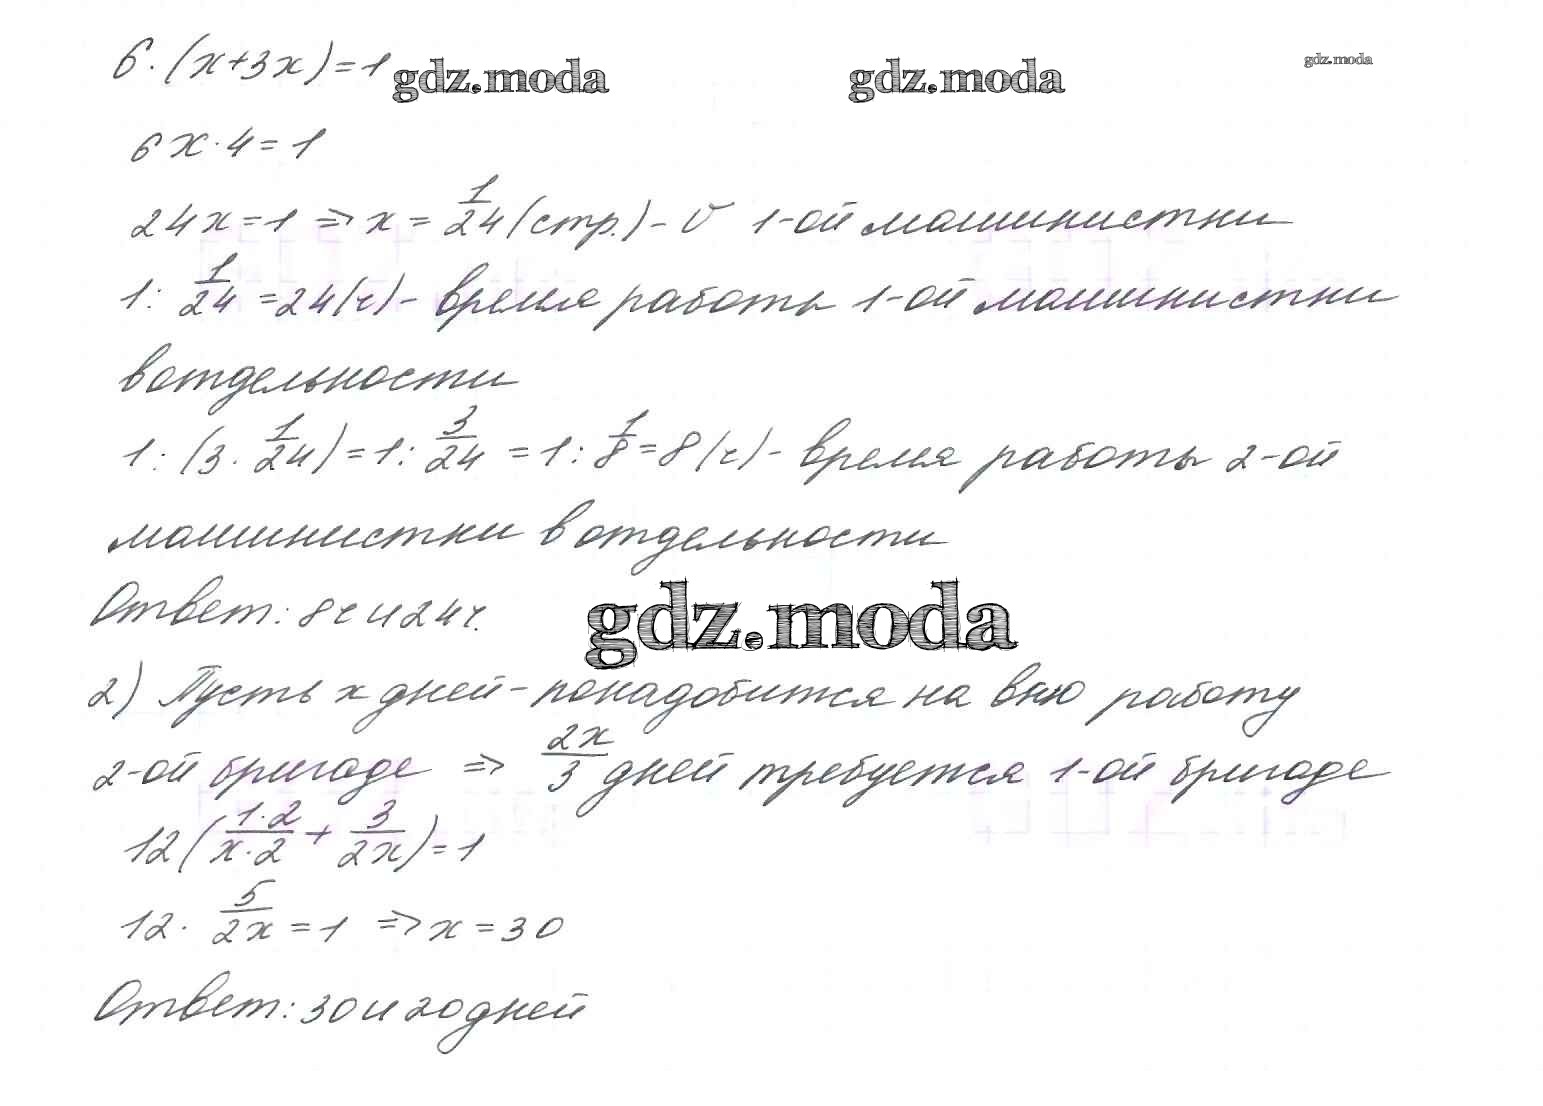 6·(x+3x)=1 gdz.moda gdz.moda gdz.moda
6x·4=1
24x=1 ⇒ x= 1/24 (стр.) - v 1-ой машинистки
1: 1/24 =24(ч) - время работы 1-ой машинистки
в отдельности
1:(3· 1/24)=1: 3/24 =1: 1/8 =8(ч) - время работы 2-ой
машинистки в отдельности
Ответ: 8ч и 24ч. gdz.moda
2) Пусть x дней - понадобится на всю работу
2-ой бригаде ⇒ 2x/3 дней требуется 1-ой бригаде
12(1·2/x·2 + 3/2x)=1
12· 5/2x =1 ⇒ x=30
Ответ: 30 и 20 дней